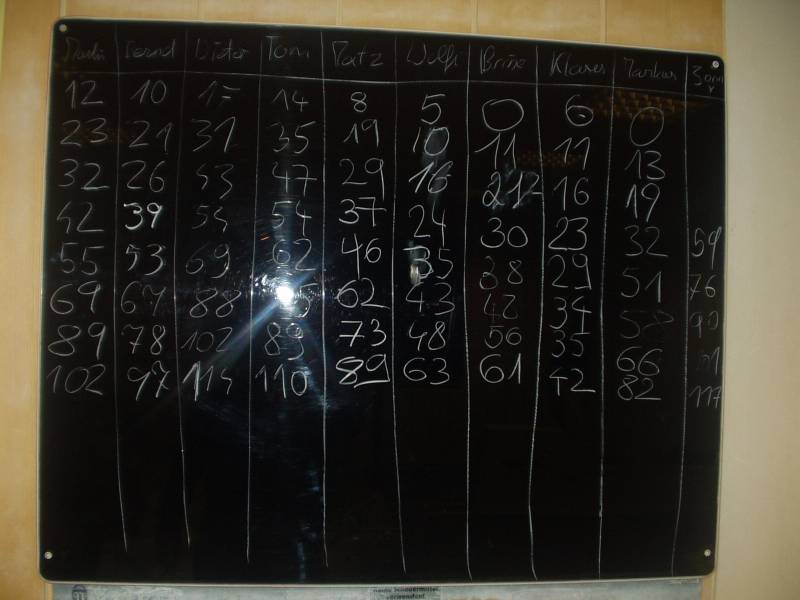 Bernd Dieter Tom Matz Wolfi Klaus Markus
12 10 17 14 8 5 0 6 0
23 21 31 35 19 10 11 11 13
32 26 43 47 29 16 16 19
42 39 54 54 37 24 30 23 32 59
55 53 69 62 46 35 38 29 51 76
69 67 88 62 43 42 34 58 90
89 78 102 89 73 48 56 35 66
102 97 114 110 89 63 61 42 82 117